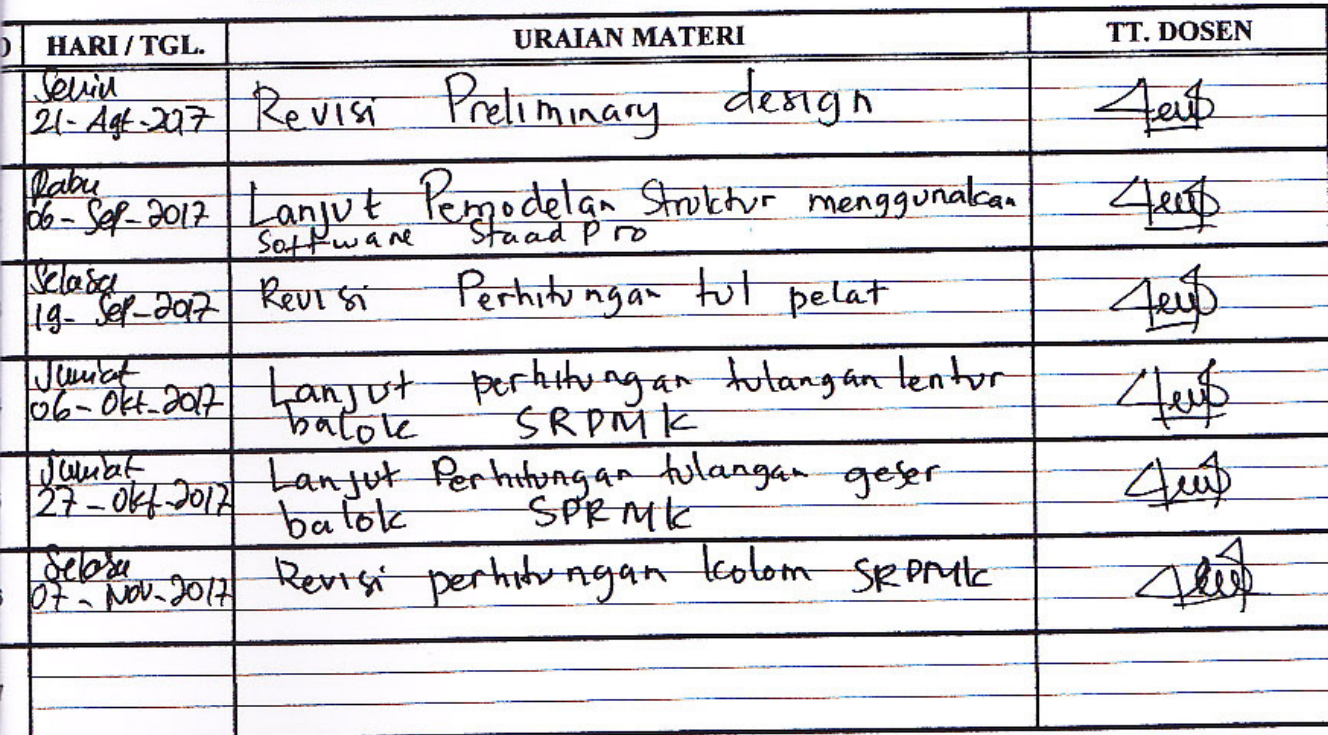 HARI / TGL. URAIAN MATERI TT. DOSEN
Senin
21-Agt-2017 Revisi Preliminary design
Rabu
06-Sep-2017 Lanjut Pemodelan Struktur menggunakan
Software Staad Pro
Selasa
19-Sep-2017 Revisi Perhitungan tul pelat
Jumat
06-Okt-2017 Lanjut perhitungan tulangan lentur
balok SRPMK
Jumat
27-Okt-2017 Lanjut Perhitungan tulangan geser
balok SPRMK
Selasa
07-Nov-2017 Revisi perhitungan kolom SRPMK